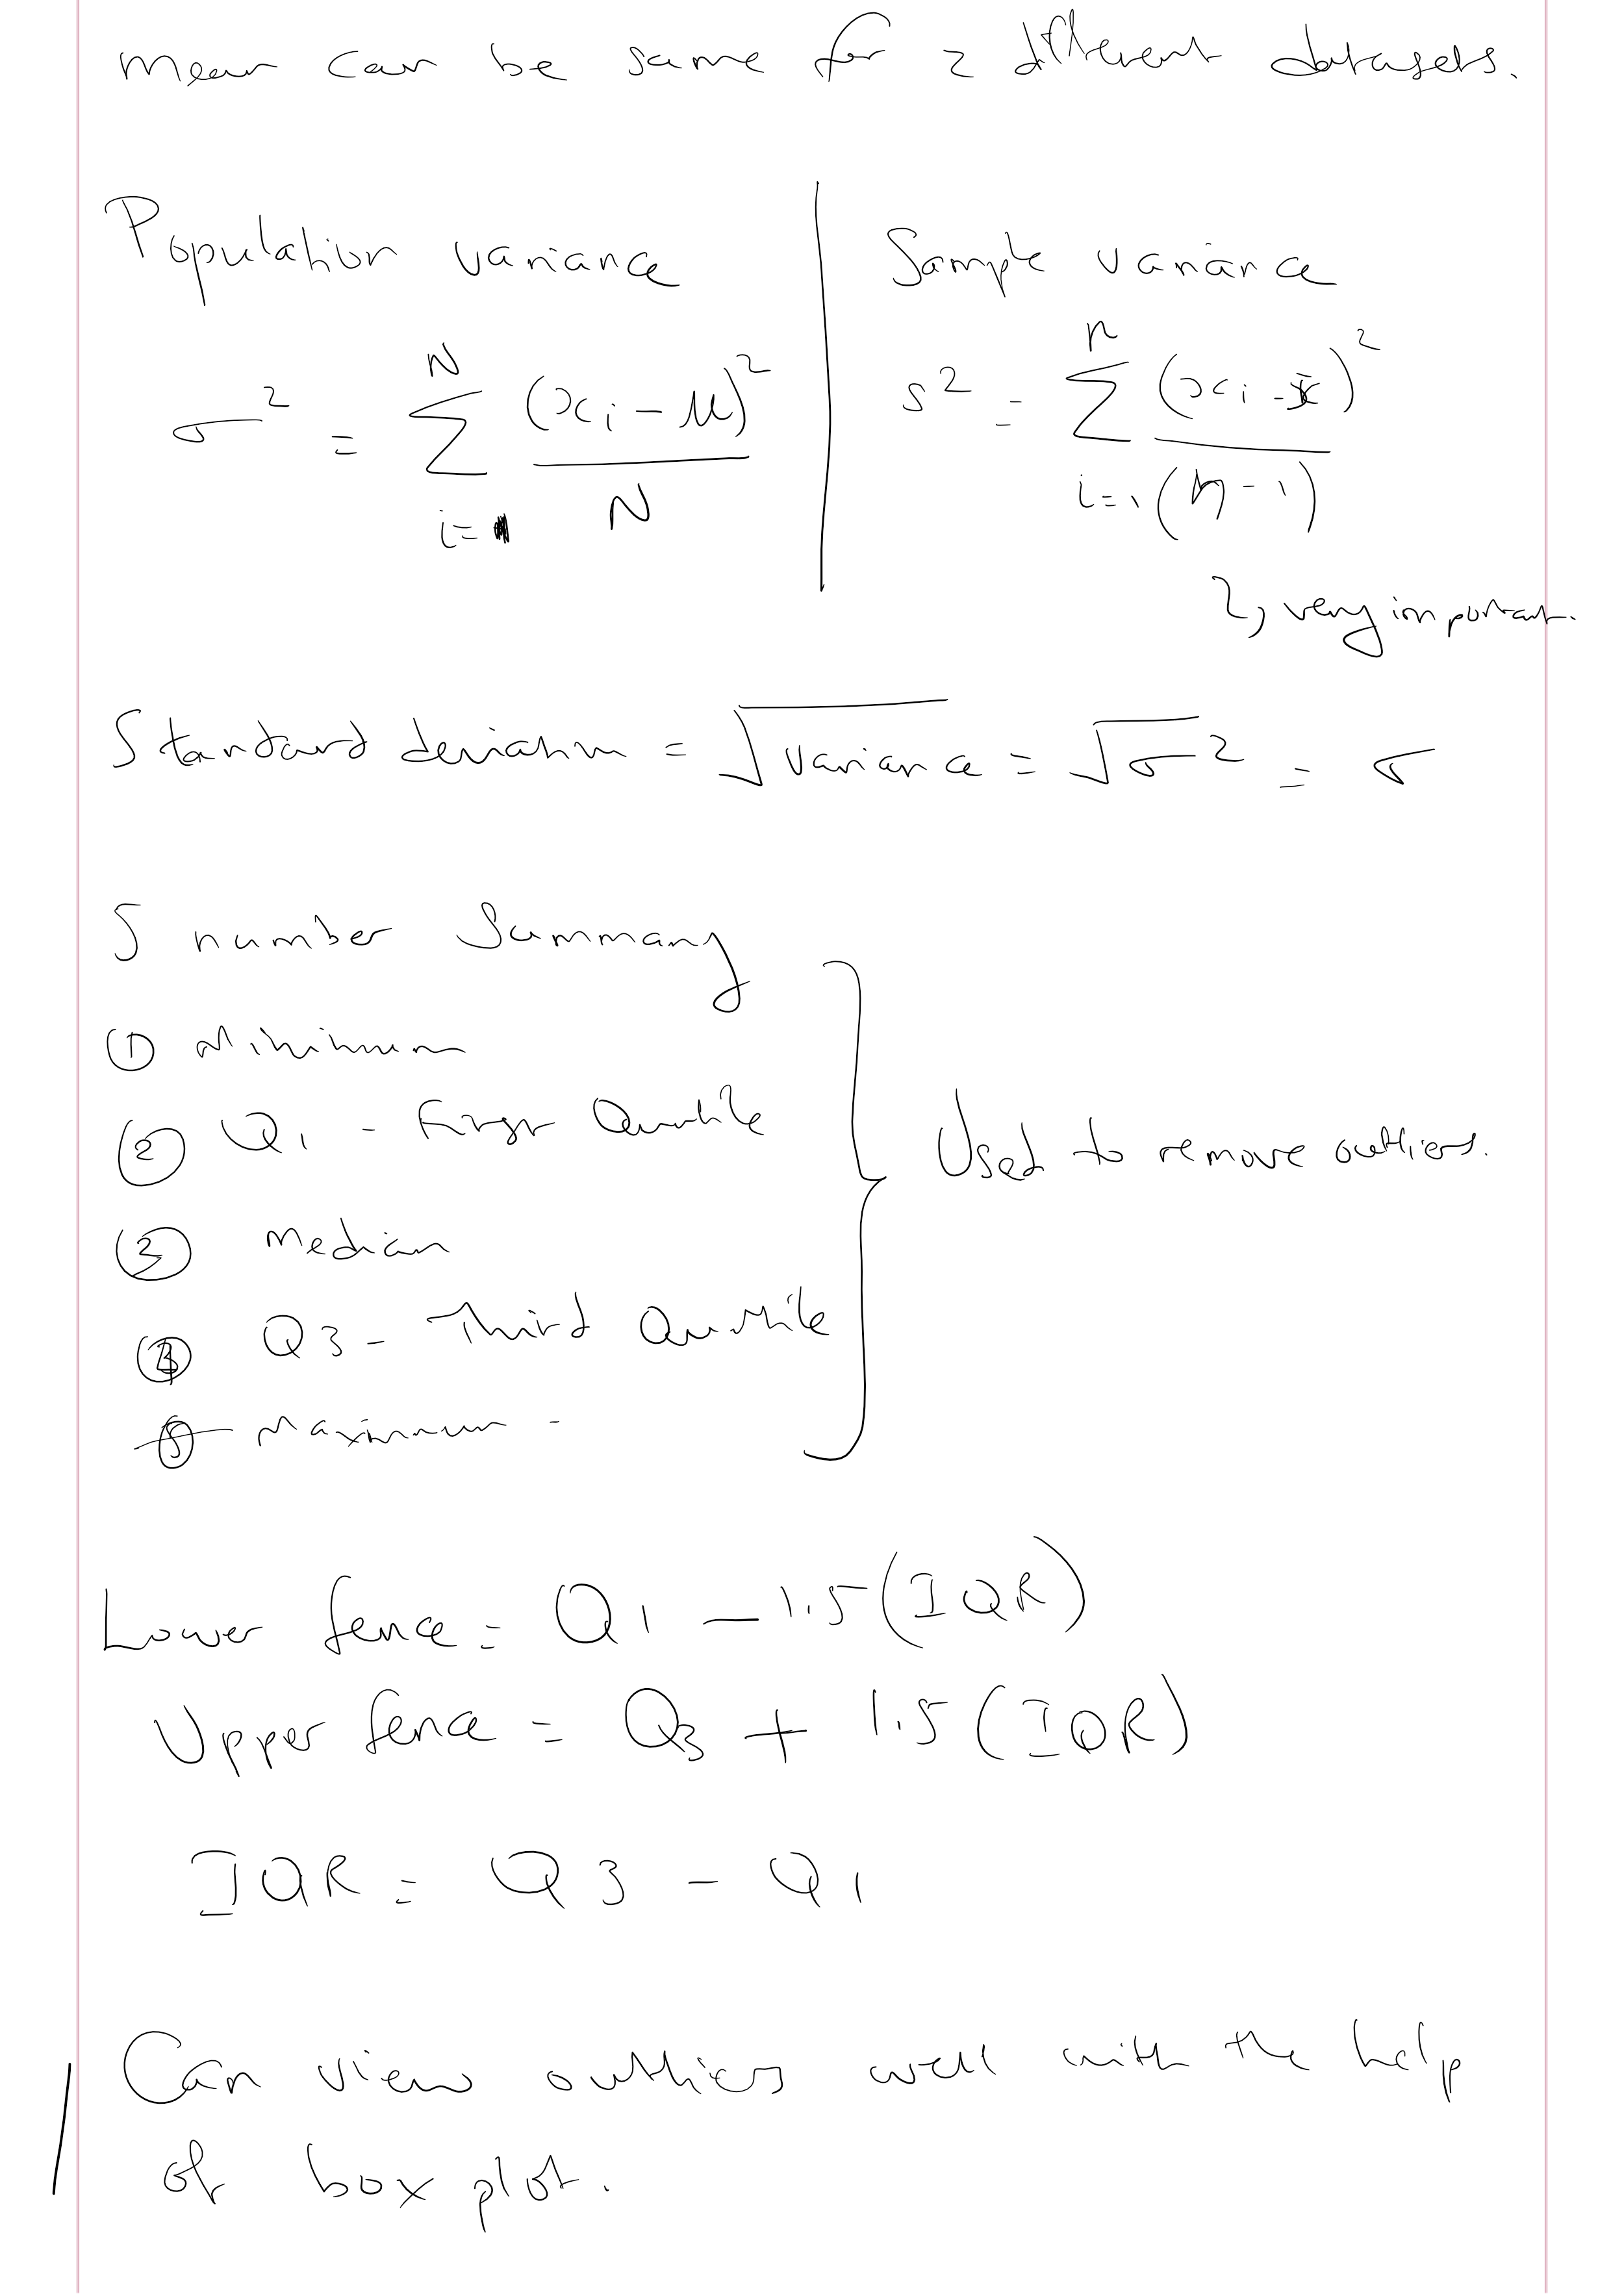 mean can be same for 2 different datasets.
Population variance
σ² = N Σ i=1 (xi - μ)² / N
Sample variance
s² = n Σ i=1 (xi - x̄)² / (n-1)
↳ very important.
Standard deviation = √variance = √σ² = σ
5 number Summary
① Minimum
② Q1 - First Quartile
③ Median
④ Q3 - Third Quartile
⑤ Maximum -
Used to remove outliers.
Lower fence = Q1 - 1.5(IQR)
Upper fence = Q3 + 1.5(IQR)
IQR = Q3 - Q1
Can view outliers well with the help
of box plot.